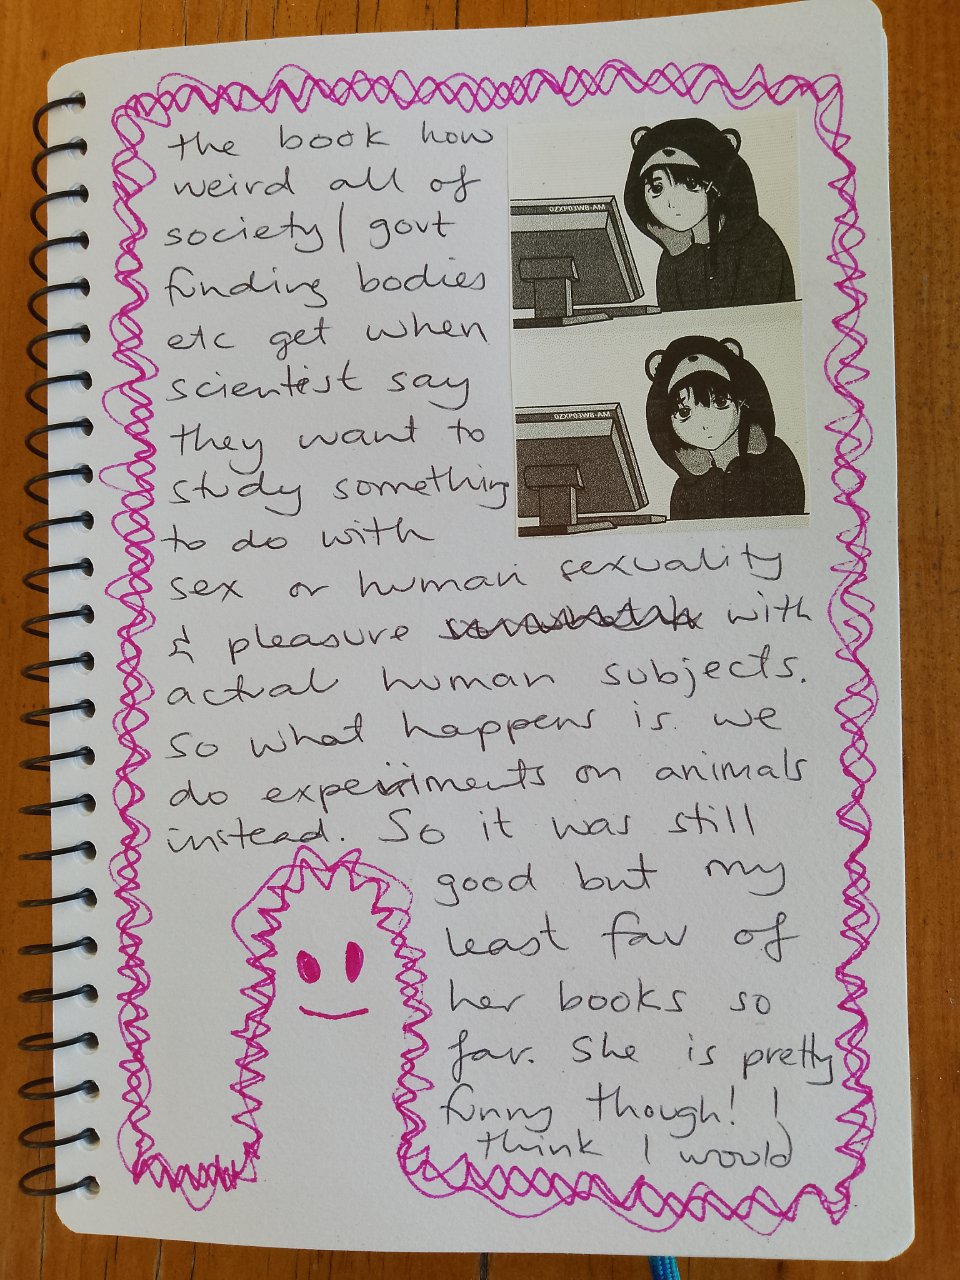 the book how
weird all of
society/govt
funding bodies
etc get when
scientist say
they want to
study something
to do with
sex or human sexuality
& pleasure with
actual human subjects.
So what happens is we
do experiments on animals
instead. So it was still
good but my
least fav of
her books so
far. She is pretty
funny though! I
think I would
0ZXP03WB-AM
0ZXP03WB-AM